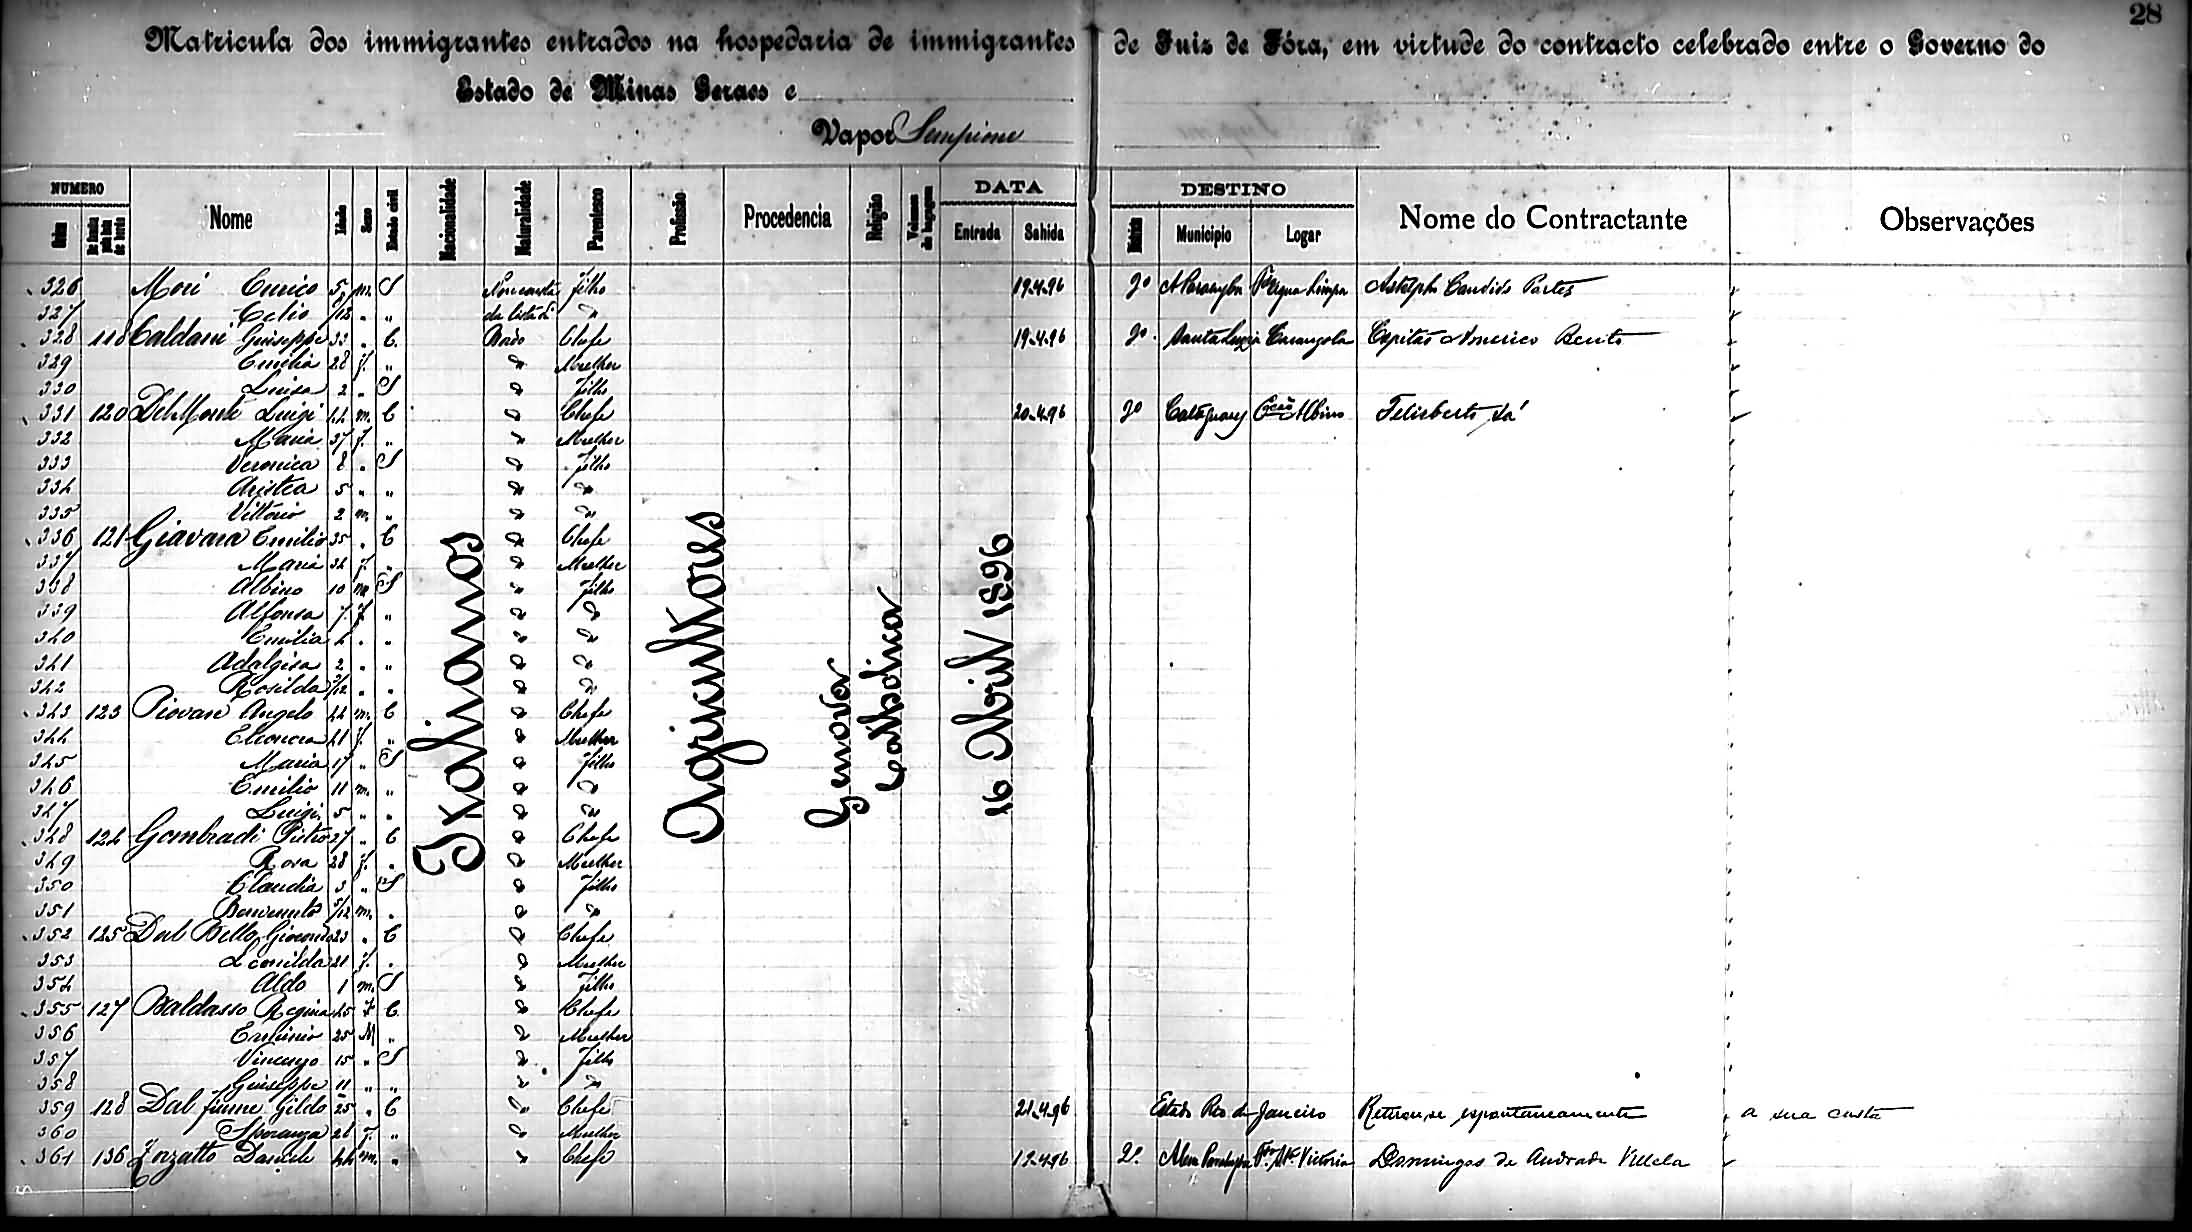 28
Matricula dos immigrantes entrados na hospedaria de immigrantes de Juiz de Fóra, em virtude do contracto celebrado entre o Governo do
Estado de Minas Geraes e
Vapor Sempione
NUMERO DATA DESTINO
Ordem Nome Idade Sexo Estado civil Nacionalidade Naturalidade Parentesco Profissão Procedencia Religião Volumes de bagagem Entrada Sahida Municipio Logar Nome do Contractante Observações
Italianos Agricultores Genova Catholica 16 Abril 1896
326 Mori Enrico 5 m. S Filho 19.4.96 Fª Agua Limpa
327 Celio /12 " " da lista de "
328 118 Caldani Giuseppe 33 " C. Bordo Chefe 19.4.96 2º Santa Luzia Carangola Capitão Americo
329 Emilia 28 f. " " Mulher
330 Luisa 2 " S " Filho
331 120 Del Monte Luigi 44 m. C " Chefe 20.4.96 2º Albino Feliberto Sá
332 Maria 37 f. " " Mulher
333 Veronica 8 " S " Filho
334 Aristea 5 " " " "
335 Vittorio 2 m. " " "
336 121 Giavara Emilio 35 " C " Chefe
337 Maria 34 f. " " Mulher
338 Albino 10 m S " Filho
339 Alfonsa 7 f " " "
340 Emilia 4 " " " "
341 Adalgisa 2 " " " "
342 Rosilda /12 " " " "
343 123 Piovan Angelo 44 m. C " Chefe
344 Eleonora 41 f. " " Mulher
345 Maria 17 " S " Filho
346 Emilio 11 m. " " "
347 Luigi 5 " " " "
348 124 Gombradi Pietro 27 " C " Chefe
349 Rosa 28 f. " " Mulher
350 Claudia 3 " S " Filho
351 Benvenuto 5/12 m. " " "
352 125 Dal Bello Giocondo 23 " C " Chefe
353 Leonilda 21 f. " " Mulher
354 Aldo 1 m. S " Filho
355 127 Baldasso Regina 45 f C " Chefe
356 Erminio 25 M " " Mulher
357 Vincenzo 15 " S " Filho
358 Giuseppe 11 " " " "
359 128 Dal Fiume Gildo 25 " C " Chefe 21.4.96 Estado Rio de Janeiro Retirou-se espontaneamente a sua custa
360 Speranza 26 f. " " Mulher
361 136 Zorzatto Daniele 44 m. " " Chefe 2º Alem Parahyba Fª Stª Victoria Domingos de Andrade Villela